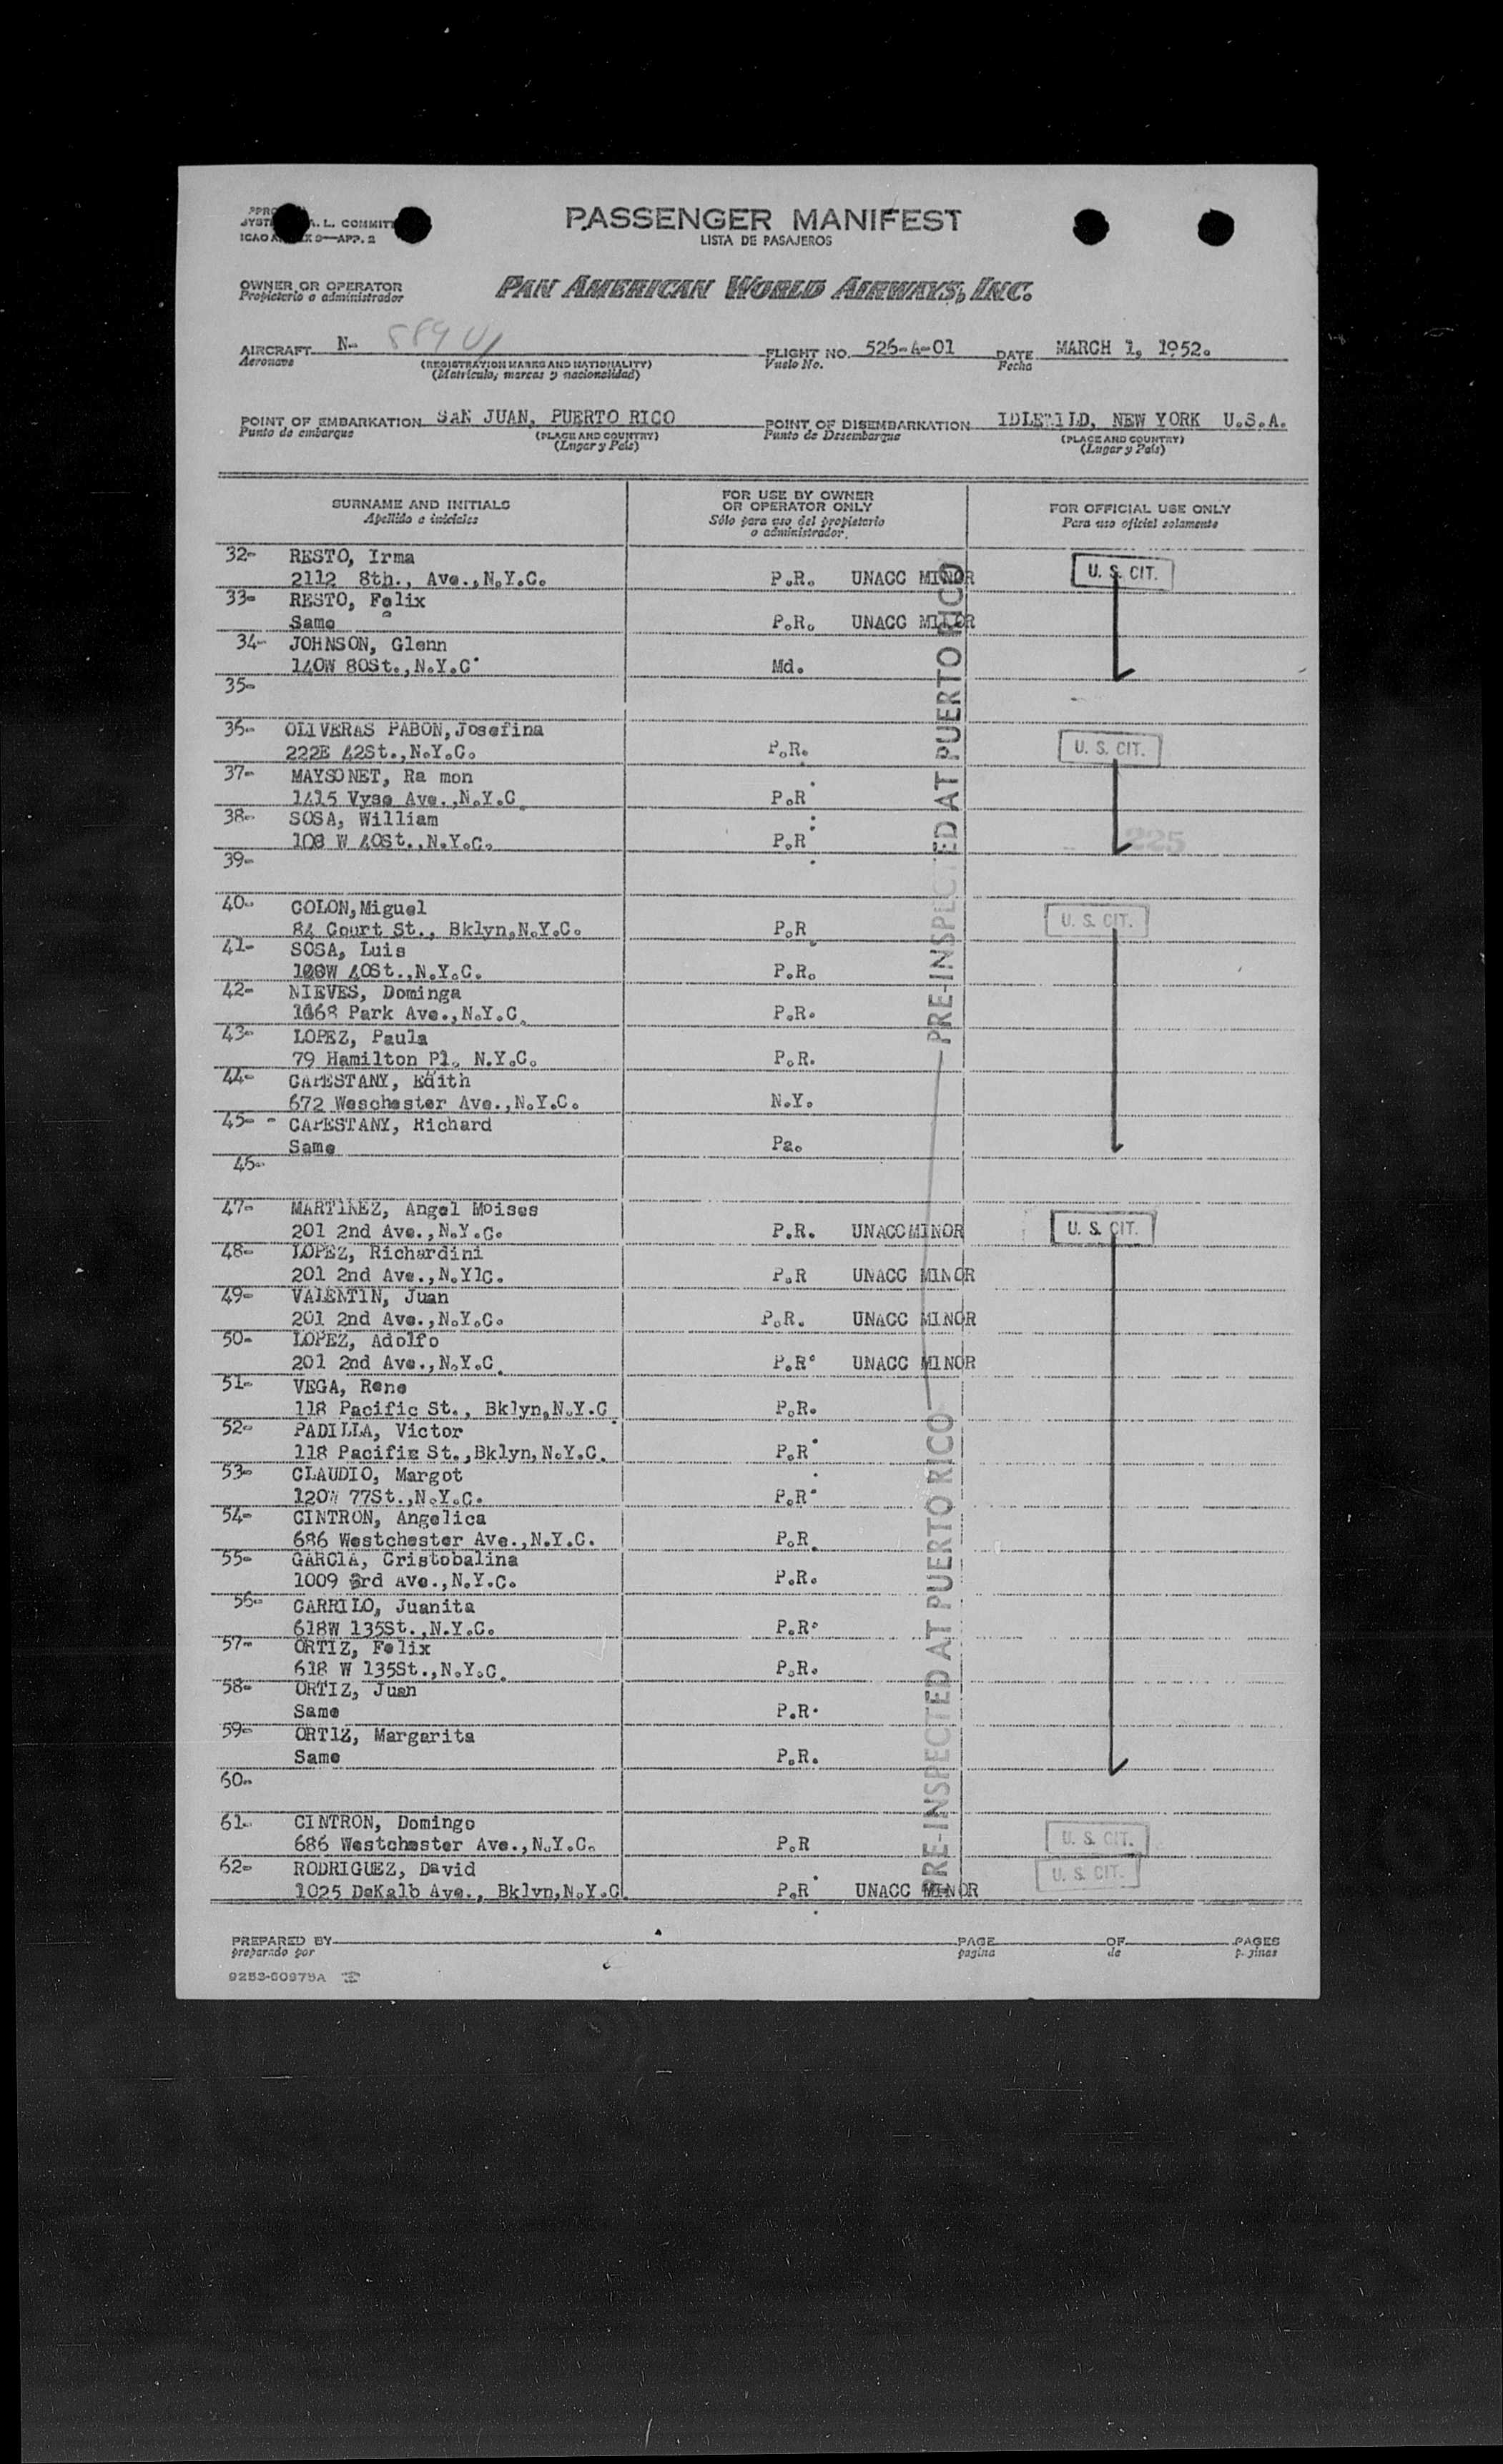 PASSENGER MANIFEST
LISTA DE PASAJEROS
A. L. COMMIT
ICAO A X 9—APP. 2
OWNER OR OPERATOR
Propietario o administrador
PAN AMERICAN WORLD AIRWAYS, INC.
AIRCRAFT N- 889 V
Aeronave
(REGISTRATION MARKS AND NATIONALITY)
(Matrícula, marcas y nacionalidad)
FLIGHT NO. 526-4-01
Vuelo No.
DATE MARCH 1, 1952.
Fecha
POINT OF EMBARKATION SAN JUAN, PUERTO RICO
Punto de embarque
(PLACE AND COUNTRY)
(Lugar y País)
POINT OF DISEMBARKATION IDLEWILD, NEW YORK U.S.A.
Punto de Desembarque
(PLACE AND COUNTRY)
(Lugar y País)
SURNAME AND INITIALS
Apellido e iniciales
FOR USE BY OWNER
OR OPERATOR ONLY
Sólo para uso del propietario
o administrador.
FOR OFFICIAL USE ONLY
Para uso oficial solamente
32- RESTO, Irma
2112 8th., Ave.,N.Y.C. P.R. UNACC MINOR U. S. CIT.
33- RESTO, Felix
Same P.R. UNACC MINOR
34- JOHNSON, Glenn
140W 80St.,N.Y.C. Md.
35-
36- OLIVERAS PABON,Josefina
222E 42St.,N.Y.C. P.R. U. S. CIT.
37- MAYSONET, Ra mon
1415 Vyse Ave.,N.Y.C. P.R.
38- SOSA, William
108 W 40St.,N.Y.C. P.R. 225
39-
40- COLON,Miguel
84 Court St., Bklyn,N.Y.C. P.R. U. S. CIT.
41- SOSA, Luis
108W 40St.,N.Y.C. P.R.
42- NIEVES, Dominga
1668 Park Ave.,N.Y.C. P.R.
43- LOPEZ, Paula
79 Hamilton Pl. N.Y.C. P.R.
44- CAPESTANY, Edith
672 Weschester Ave.,N.Y.C. N.Y.
45- CAPESTANY, Richard
Same Pa.
46-
47- MARTINEZ, Angel Moises
201 2nd Ave.,N.Y.C. P.R. UNACCMINOR U. S. CIT.
48- LOPEZ, Richardini
201 2nd Ave.,N.YlC. P.R UNACC MINOR
49- VALENTIN, Juan
201 2nd Ave.,N.Y.C. P.R. UNACC MINOR
50- LOPEZ, Adolfo
201 2nd Ave.,N.Y.C. P.R. UNACC MINOR
51- VEGA, Rene
118 Pacific St., Bklyn,N.Y.C. P.R.
52- PADILLA, Victor
118 Pacific St.,Bklyn,N.Y.C. P.R.
53- CLAUDIO, Margot
120W 77St.,N.Y.C. P.R.
54- CINTRON, Angelica
686 Westchester Ave.,N.Y.C. P.R.
55- GARCIA, Cristobalina
1009 3rd Ave.,N.Y.C. P.R.
56- CARRILO, Juanita
618W 135St.,N.Y.C. P.R.
57- ORTIZ, Felix
618 W 135St.,N.Y.C. P.R.
58- ORTIZ, Juan
Same P.R.
59- ORTIZ, Margarita
Same P.R.
60-
61- CINTRON, Domingo
686 Westchester Ave.,N.Y.C. P.R U. S. CIT.
62- RODRIGUEZ, David
1025 DeKalb Ave., Bklyn,N.Y.C. P.R. UNACC MINOR U. S. CIT.
PRE-INSPECTED AT PUERTO RICO
PRE-INSPECTED AT PUERTO RICO
PREPARED BY
preparado por
PAGE OF PAGES
pagina de paginas
9253-00975A